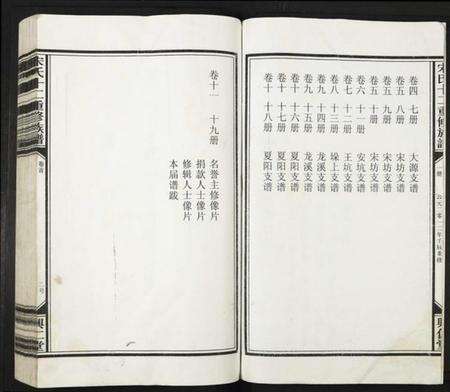 宋氏十二重修族譜
卷四 七册 大源支谱
卷五 八册 宋坊支谱
卷五 九册 宋坊支谱
卷五 十册 宋坊支谱
卷六 十一册 安坑支谱
卷七 十二册 王坑支谱
卷八 十三册 垛上支谱
卷九 十四册 龙溪支谱
卷九 十五册 龙溪支谱
卷十 十六册 夏阳支谱
卷十 十七册 夏阳支谱
卷十 十八册 夏阳支谱
卷十一 十九册 名誉主修像片
捐款人士像片
修辑人士像片
本届谱跋
宋氏十二重修族譜
卷首
興仁堂